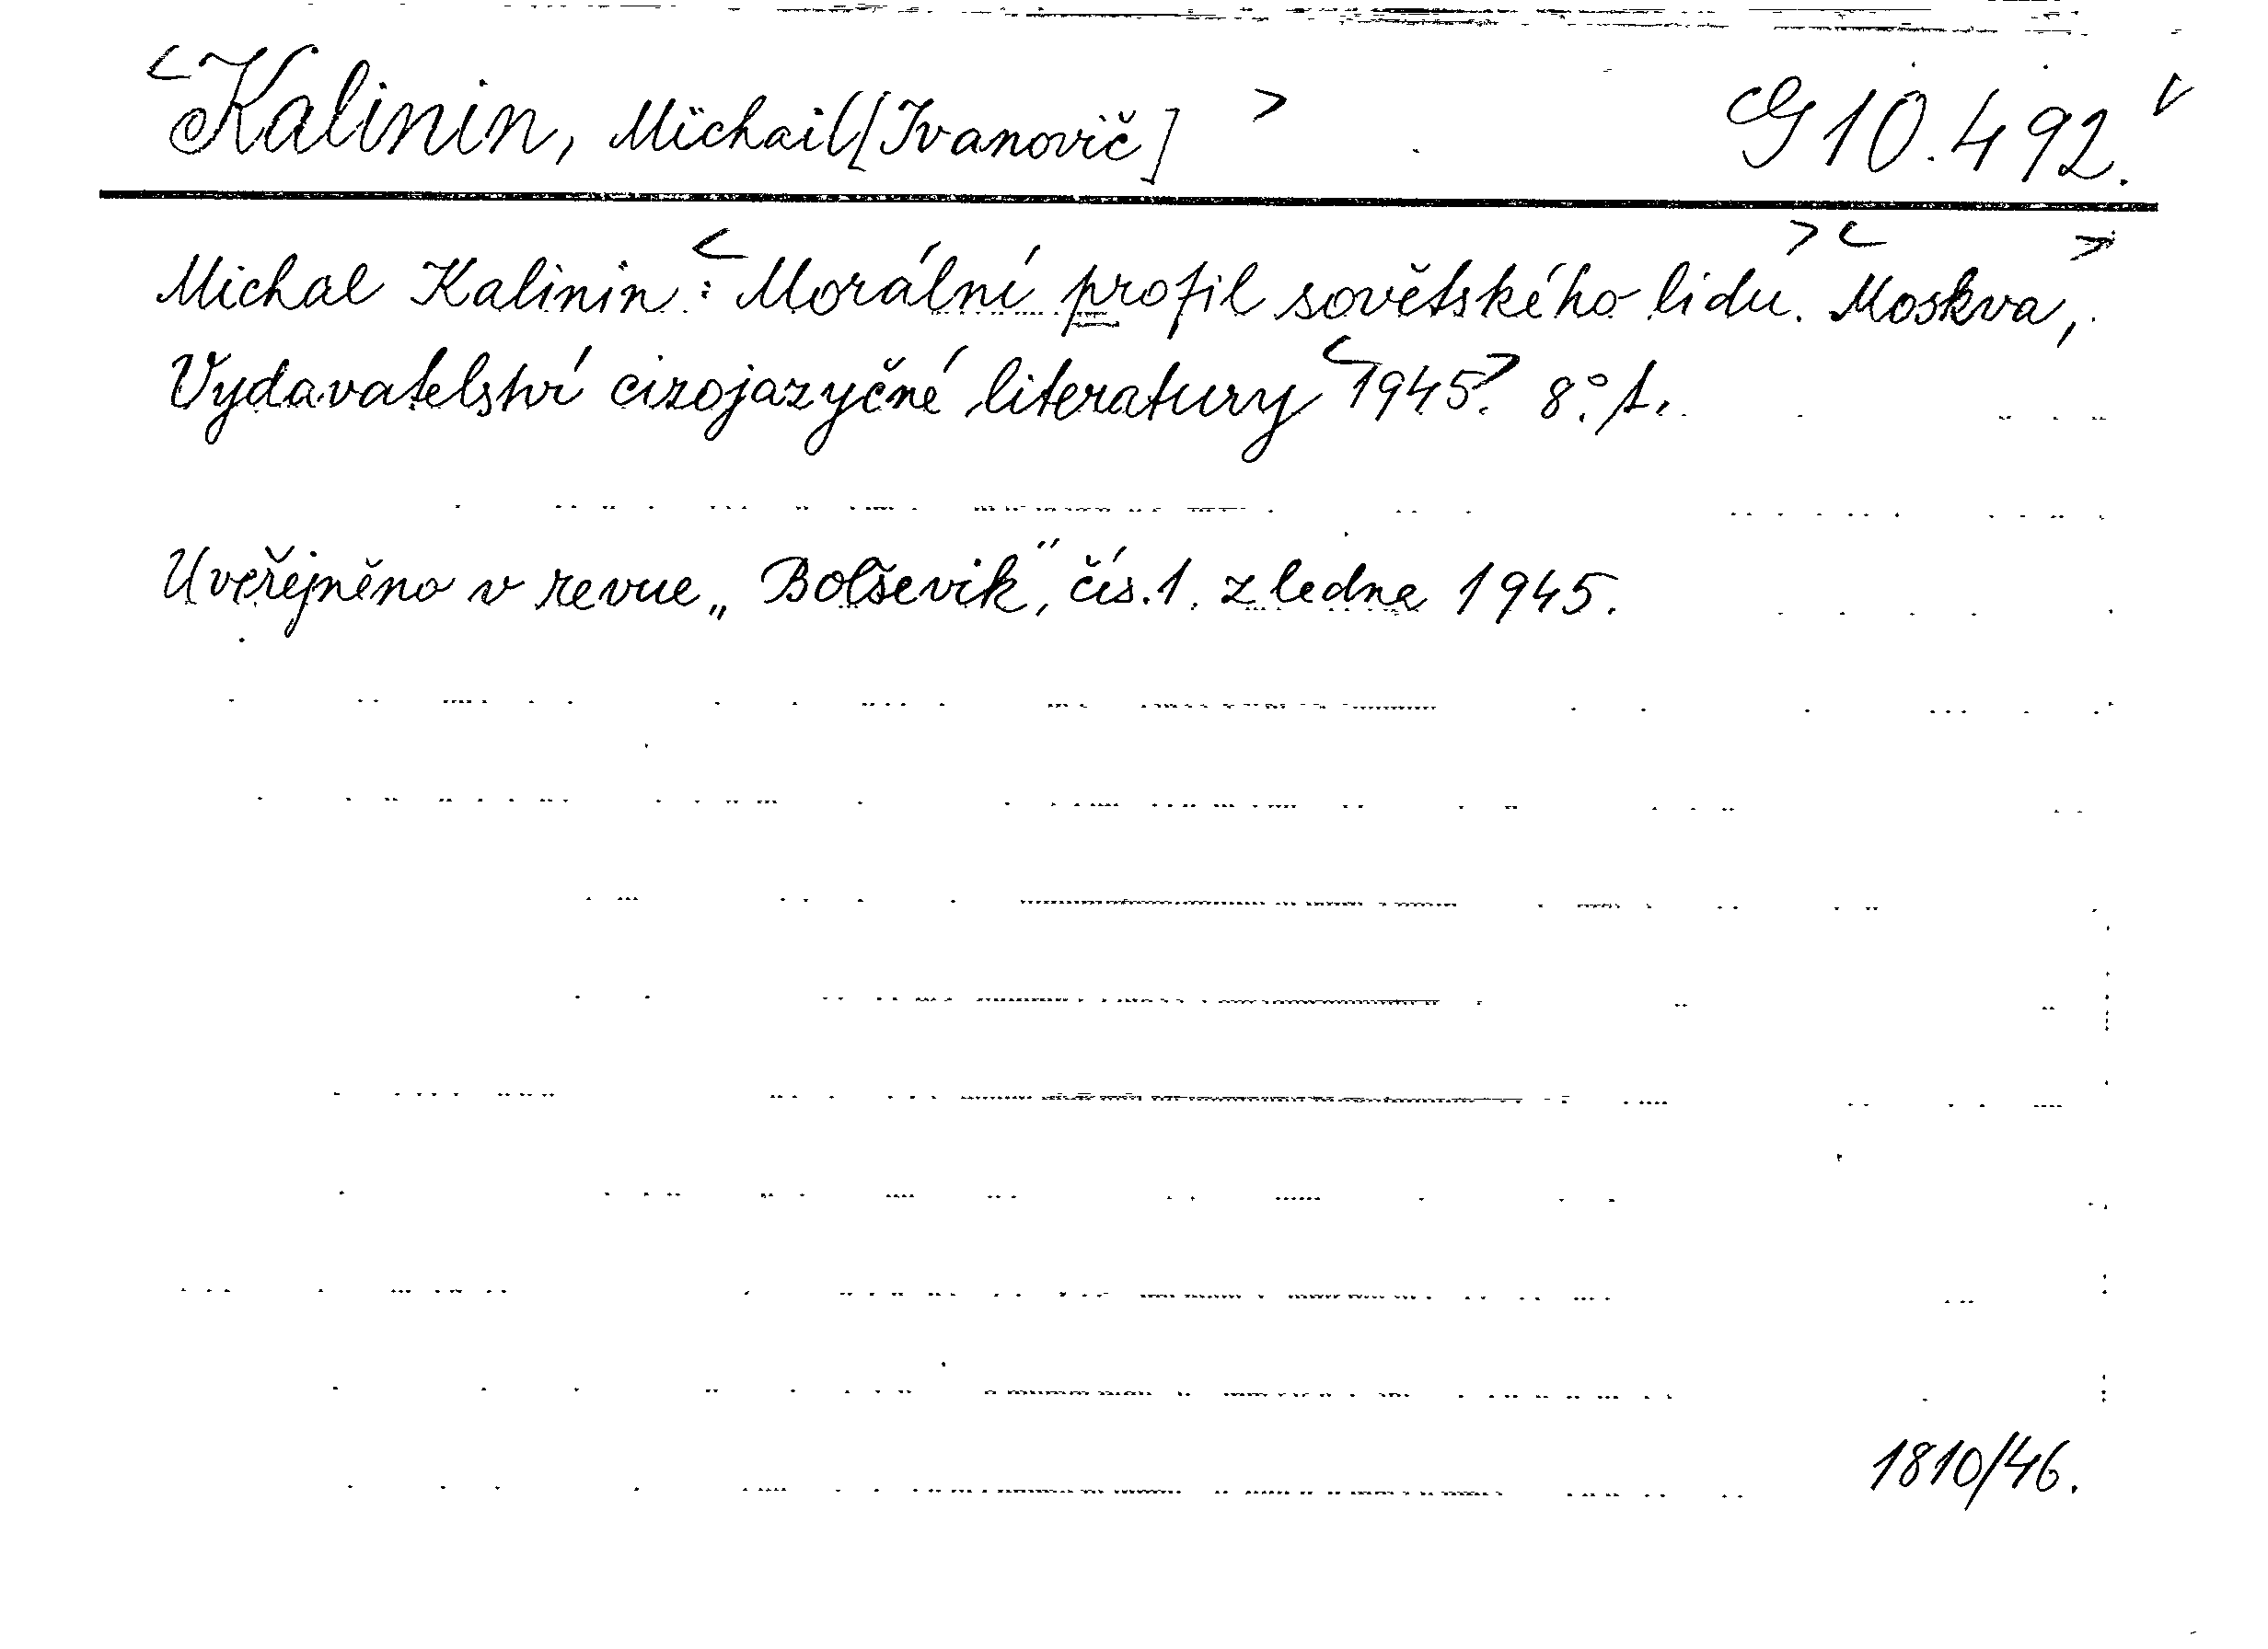 <Kalinin, Michail[Ivanovič]> G 10.492.
Michal Kalinin: <Morální profil sovětského lidu.> <Moskva,>
Vydavatelství cizojazyčné literatury <1945>. 8°.
Uveřejněno v revue „Bolševik“, čís. 1. z ledna 1945.
1810/46.